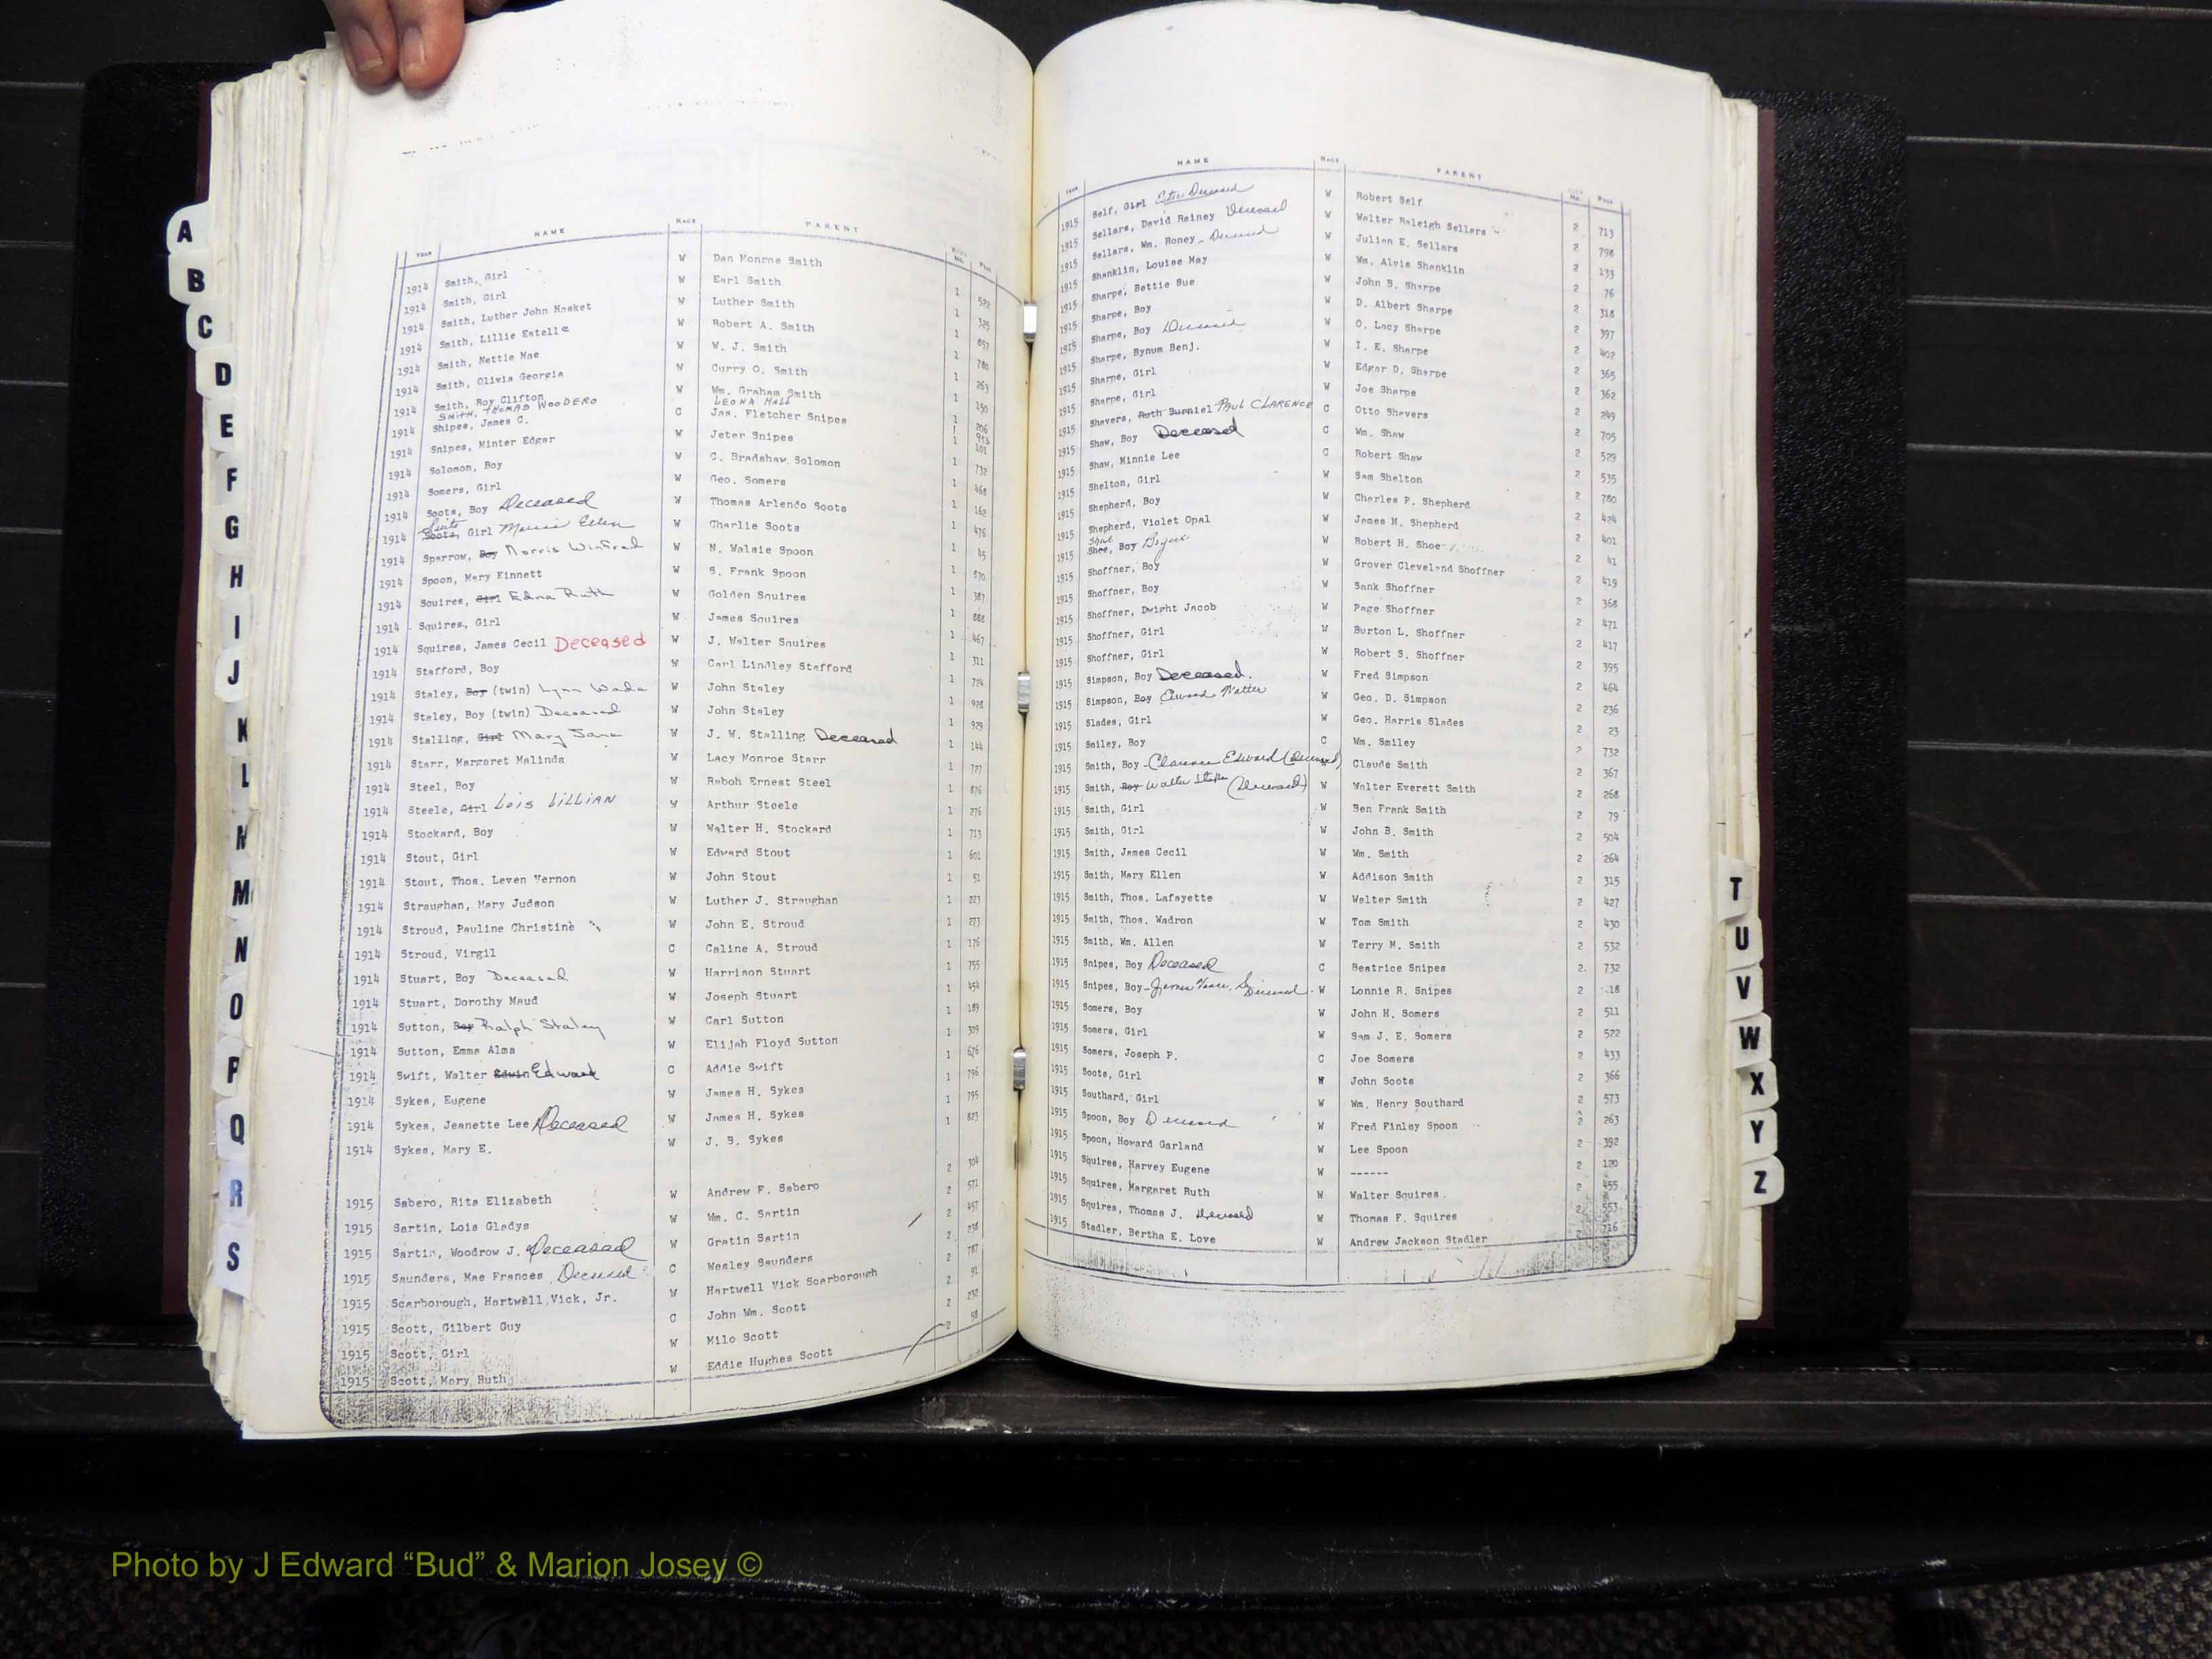 YEAR NAME RACE PARENT BOOK NO. PAGE
1914 Smith, Girl W Dan Monroe Smith 1 522
1914 Smith, Girl W Earl Smith 1 325
1914 Smith, Luther John Hasket W Luther Smith 1
1914 Smith, Lillie Estelle W Robert A. Smith 1 780
1914 Smith, Nettie Mae W W. J. Smith 1 263
1914 Smith, Olivia Georgia W Curry O. Smith 1 150
1914 Smith, Roy Clifton W Wm. Graham Smith 1 206
SMITH, THOMAS WOODERO LEONA HALL 1
1914 Snipes, James C. C Jas. Fletcher Snipes 101
1914 Snipes, Minter Edgar W Jeter Snipes 1 732
1914 Solomon, Boy W C. Bradshaw Solomon 1 468
1914 Somers, Girl W Geo. Somers 1 162
1914 Soots, Boy Deceased W Thomas Arlendo Soots 1 476
1914 Soots, Suits Girl Ellen W Charlie Soots 1 45
1914 Sparrow, Boy Norris Winfred W N. Walsie Spoon 1 870
1914 Spoon, Mary Kinnett W S. Frank Spoon 1 387
1914 Squires, Girl Edna Ruth W Golden Squires 1 888
1914 Squires, Girl W James Squires 1 467
1914 Squires, James Cecil Deceased W J. Walter Squires 1 311
1914 Stafford, Boy W Carl Lindley Stafford 1 724
1914 Staley, Boy (twin) Lynn Wade W John Staley 1 928
1914 Staley, Boy (twin) Deceased W John Staley 1 929
1914 Stalling, Girl Mary Jane W J. W. Stalling Deceased 1 144
1914 Starr, Margaret Malinda W Lacy Monroe Starr 1 727
1914 Steel, Boy W Raboh Ernest Steel 1 876
1914 Steele, Girl Lois LiLLiAN W Arthur Steele 1 276
1914 Stockard, Boy W Walter H. Stockard 1 713
1914 Stout, Girl W Edward Stout 1 601
1914 Stout, Thos. Leven Vernon W John Stout 1 51
1914 Straughan, Mary Judson W Luther J. Straughan 1 221
1914 Stroud, Pauline Christine W John E. Stroud 1 273
1914 Stroud, Virgil C Caline A. Stroud 1 176
1914 Stuart, Boy Deceased W Harrison Stuart 1 755
1914 Stuart, Dorothy Maud W Joseph Stuart 1 454
1914 Sutton, Boy Ralph Staley W Carl Sutton 1 189
1914 Sutton, Emma Alma W Elijah Floyd Sutton 1 309
1914 Swift, Walter Edwin Edward C Addie Swift 1 676
1914 Sykes, Eugene W James H. Sykes 1 796
1914 Sykes, Jeanette Lee Deceased W James H. Sykes 1 795
1914 Sykes, Mary E. W J. B. Sykes 1 823
1915 Sabero, Rita Elizabeth W Andrew F. Sabero 2 304
1915 Sartin, Lois Gladys W Wm. C. Sartin 2 571
1915 Sartin, Woodrow J. Deceased W Gratin Sartin 2 457
1915 Saunders, Mae Frances Deceased C Wesley Saunders 2 238
1915 Scarborough, Hartwell, Vick, Jr. W Hartwell Vick Scarborough 2 787
1915 Scott, Gilbert Guy C John Wm. Scott 2 51
1915 Scott, Girl W Milo Scott 2 232
1915 Scott, Mary Ruth W Eddie Hughes Scott 2 58
YEAR NAME RACE PARENT BOOK NO. PAGE
1915 Self, Girl Deceased W Robert Self 2 713
1915 Sellars, David Rainey Deceased W Walter Raleigh Sellars 2 798
1915 Sellars, Wm. Roney - Deceased W Julian E. Sellars 2 133
1915 Shanklin, Louise May W Wm. Alvis Shanklin 2 76
1915 Sharpe, Bettie Sue W John B. Sharpe 2 318
1915 Sharpe, Boy W D. Albert Sharpe 2 397
1915 Sharpe, Boy Deceased W O. Lacy Sharpe 2 402
1915 Sharpe, Bynum Benj. W I. E. Sharpe 2 365
1915 Sharpe, Girl W Edgar D. Sharpe 2 362
1915 Sharpe, Girl W Joe Sharpe 2 249
1915 Shavers, Ruth Burniel PAUL CLARENCE C Otto Shavers 2 705
1915 Shaw, Boy Deceased C Wm. Shaw 2 529
1915 Shaw, Minnie Lee C Robert Shaw 2 535
1915 Shelton, Girl W Sam Shelton 2 780
1915 Shepherd, Boy W Charles P. Shepherd 2 424
1915 Shepherd, Violet Opal W James M. Shepherd 2 401
1915 Shoe, Boy W Robert H. Shoe 2 41
1915 Shoffner, Boy W Grover Cleveland Shoffner 2 419
1915 Shoffner, Boy W Sank Shoffner 2 368
1915 Shoffner, Dwight Jacob W Page Shoffner 2 471
1915 Shoffner, Girl W Burton L. Shoffner 2 417
1915 Shoffner, Girl W Robert S. Shoffner 2 395
1915 Simpson, Boy Deceased. W Fred Simpson 2 464
1915 Simpson, Boy Walter W Geo. D. Simpson 2 236
1915 Slades, Girl W Geo. Harris Slades 2 23
1915 Smiley, Boy C Wm. Smiley 2 732
1915 Smith, Boy - Clarence Edward (Deceased) W Claude Smith 2 367
1915 Smith, Boy Walter (Deceased) W Walter Everett Smith 2 268
1915 Smith, Girl W Ben Frank Smith 2 79
1915 Smith, Girl W John B. Smith 2 504
1915 Smith, James Cecil W Wm. Smith 2 264
1915 Smith, Mary Ellen W Addison Smith 2 315
1915 Smith, Thos. Lafayette W Walter Smith 2 427
1915 Smith, Thos. Wadron W Tom Smith 2 430
1915 Smith, Wm. Allen W Terry M. Smith 2 532
1915 Snipes, Boy Deceased C Beatrice Snipes 2 732
1915 Snipes, Boy - James Vance, Deceased W Lonnie R. Snipes 2 18
1915 Somers, Boy W John H. Somers 2 511
1915 Somers, Girl W Sam J. E. Somers 2 522
1915 Somers, Joseph P. C Joe Somers 2 433
1915 Soots, Girl W John Soots 2 366
1915 Southard, Girl W Wm. Henry Southard 2 573
1915 Spoon, Boy Deceased W Fred Finley Spoon 2 263
1915 Spoon, Howard Garland W Lee Spoon 2 392
1915 Squires, Harvey Eugene W ------ 2 120
1915 Squires, Margaret Ruth W Walter Squires 2 455
1915 Squires, Thomas J. Deceased W Thomas F. Squires 2 553
1915 Stadler, Bertha E. Love W Andrew Jackson Stadler 2 716
A
B
C
D
E
F
G
H
I
J
K
L
M
N
O
P
Q
R
S
T
U
V
W
X
Y
Z
Photo by J Edward “Bud” & Marion Josey ©